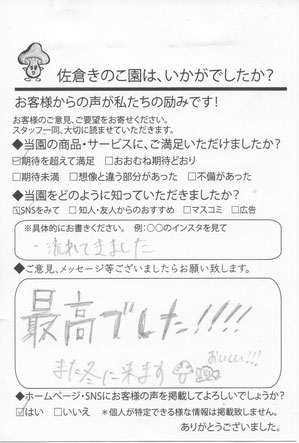 佐倉きのこ園は、いかがでしたか？
お客様からの声が私たちの励みです！
お客様のご意見、ご要望をお寄せください。
スタッフ一同、大切に読ませていただきます。
◆当園の商品・サービスに、ご満足いただけましたか？
☑期待を超えて満足 □おおむね期待どおり
□期待未満 □想像と違う部分があった □不備があった
◆当園をどのように知っていただきましたか？
☑SNSをみて □知人・友人からのおすすめ □マスコミ □広告
※具体的にお書きください。 例：○○のインスタを見て
・流れてきました
◆ご意見、メッセージ等ございましたらお願い致します。
最高でした!!!!
また冬に来ます
おいしい!!!
◆ホームページ・SNSにお客様の声を掲載してよろしいでしょうか？
☑はい □いいえ ＊個人が特定できる様な情報は掲載致しません。
ありがとうございました。